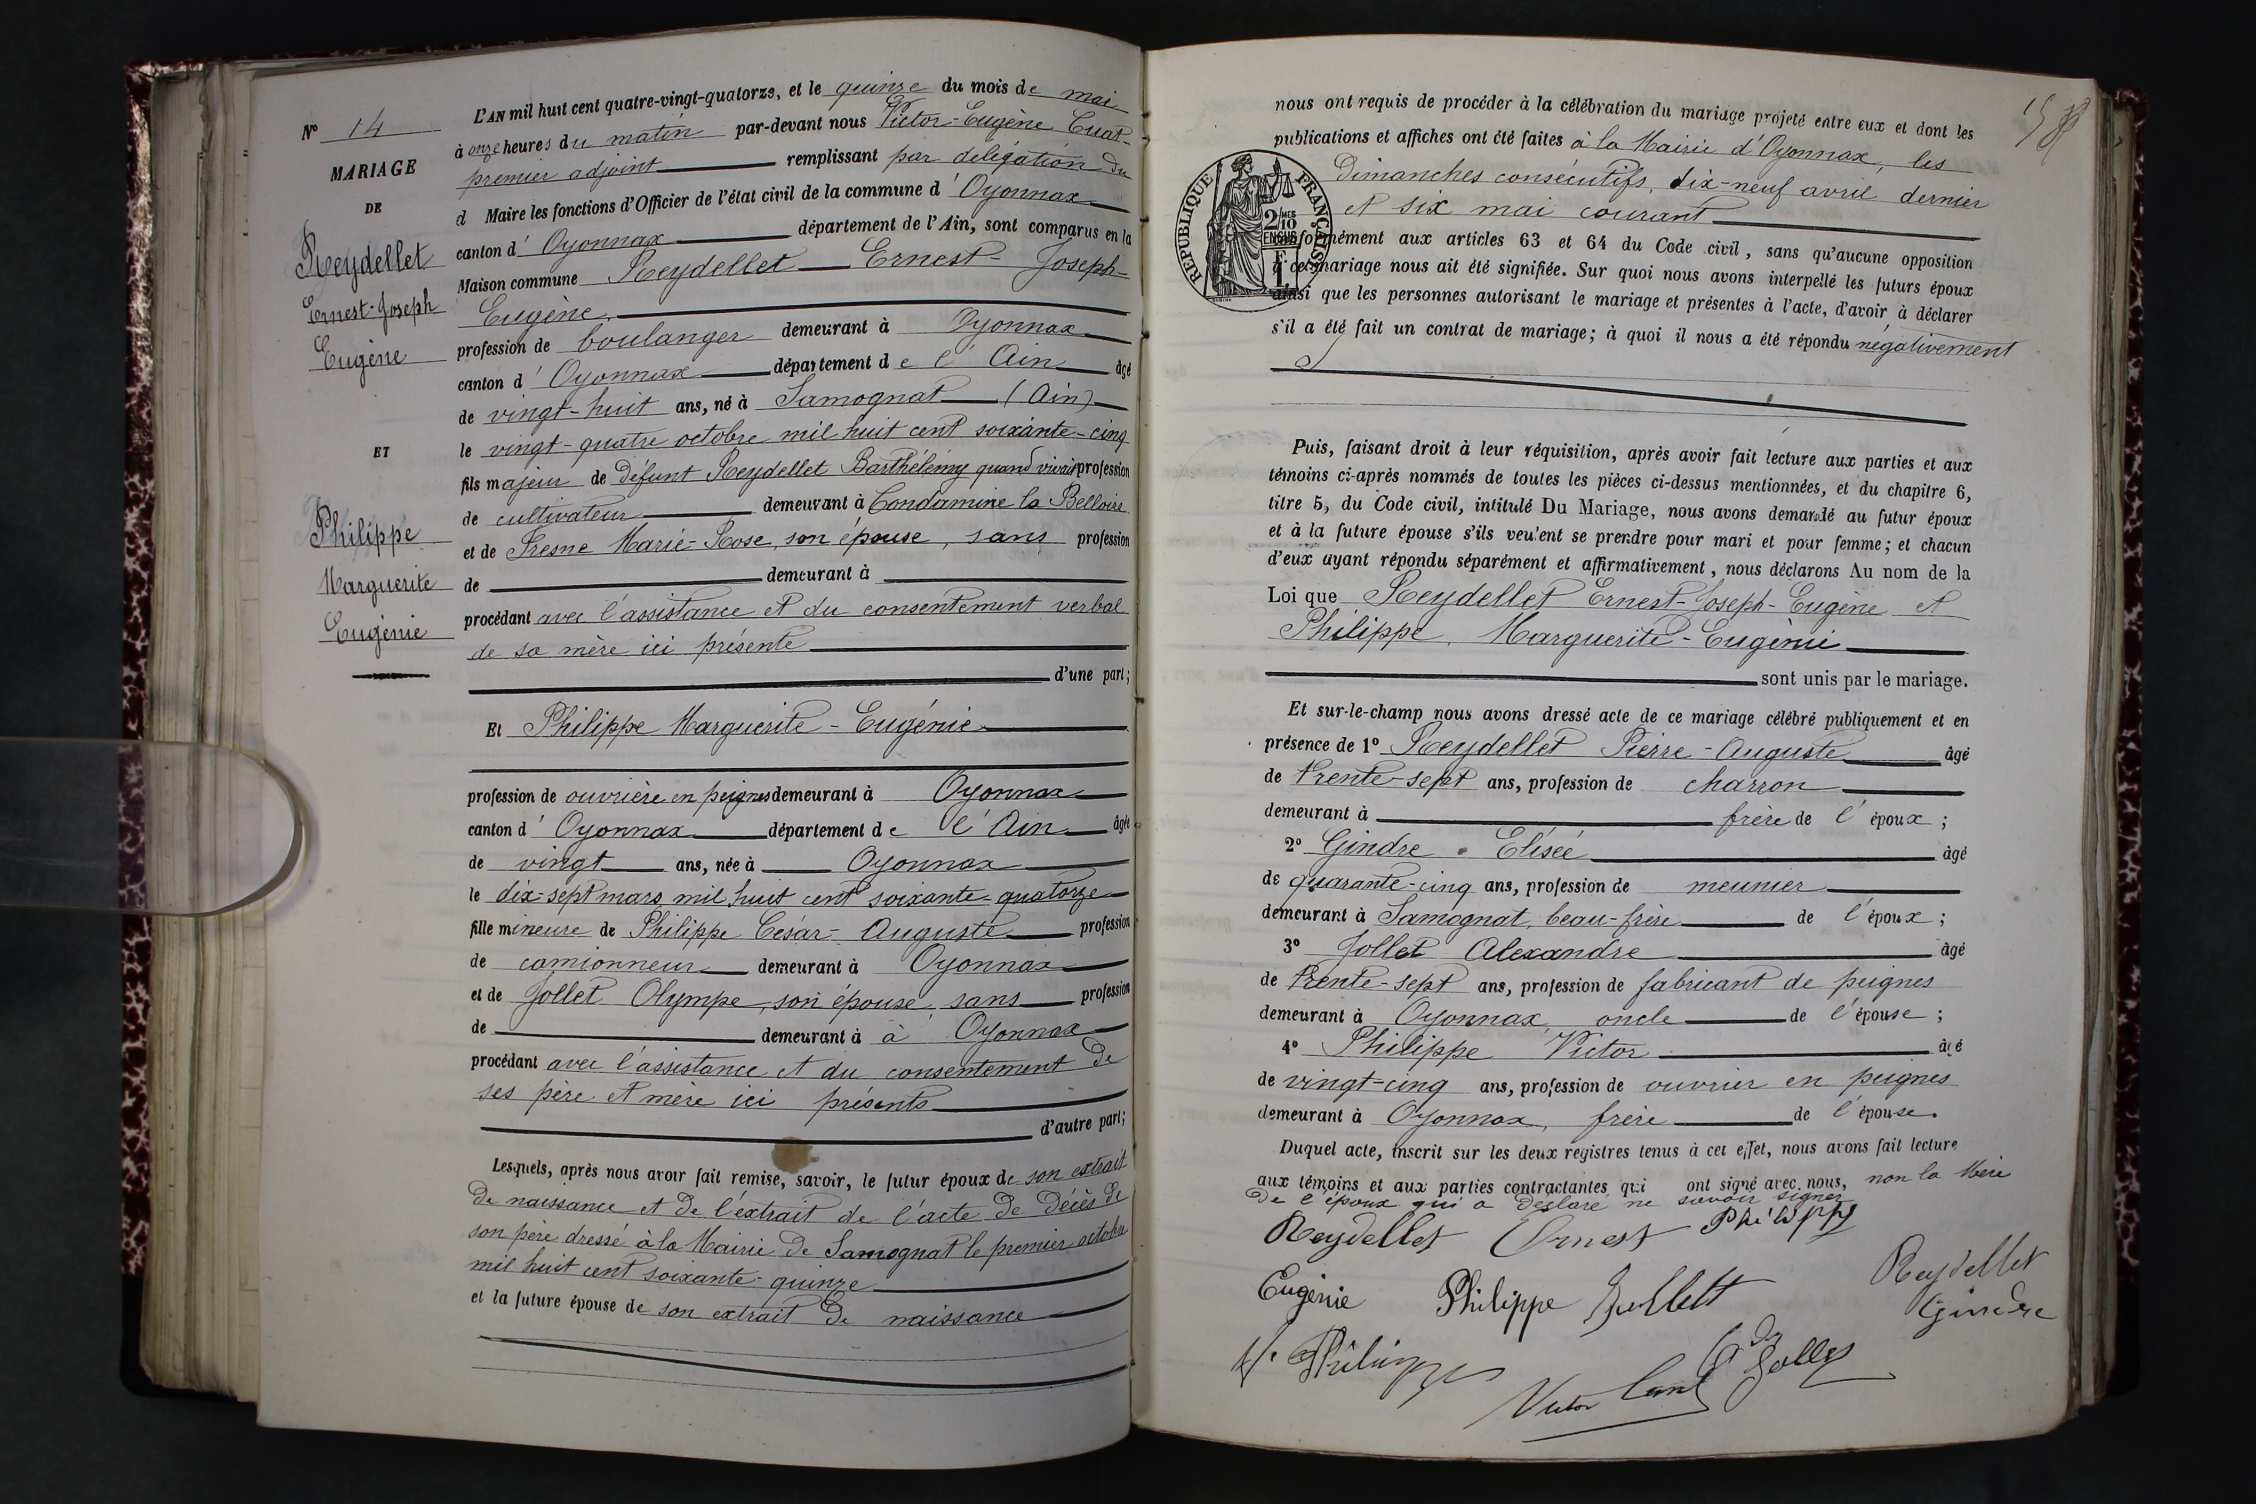 N° 14
MARIAGE
DE
Reydellet
Ernest-Joseph
Eugène
ET
Philippe
Marguerite
Eugénie
L'AN mil huit cent quatre-vingt-quatorze, et le quinze du mois de mai
à onze heures du matin par-devant nous Victor-Eugène
premier adjoint remplissant par délégation du
d Maire les fonctions d'Officier de l'état civil de la commune d' Oyonnax
canton d' Oyonnax département de l'Ain, sont comparus en la
Maison commune Reydellet Ernest-Joseph-
Eugène,
profession de boulanger demeurant à Oyonnax
canton d' Oyonnax département de l'Ain âgé
de vingt-huit ans, né à Samognat (Ain)
le vingt-quatre octobre mil huit cent soixante-cinq
fils majeur de défunt Reydellet Barthélemy quand vivait profession
de cultivateur demeurant à Condamine la Belloire
et de Fresne Marie-Rose, son épouse, sans profession
de demeurant à
procédant avec l'assistance et du consentement verbal
de sa mère ici présente
d'une part;
Et Philippe Marguerite-Eugénie
profession de ouvrière en peignes demeurant à Oyonnax
canton d' Oyonnax département de l'Ain âgée
de vingt ans, née à Oyonnax
le dix-sept mars mil huit cent soixante-quatorze
fille mineure de Philippe César-Auguste profession
de camionneur demeurant à Oyonnax
et de Jollet Olympe, son épouse, sans profession
de demeurant à à Oyonnax
procédant avec l'assistance et du consentement de
ses père et mère ici présents
d'autre part;
Lesquels, après nous avoir fait remise, savoir, le futur époux de son extrait
de naissance et de l'extrait de l'acte de décès de
son père dressé à la Mairie de Samognat le premier octobre
mil huit cent soixante-quinze
et la future épouse de son extrait de naissance
nous ont requis de procéder à la célébration du mariage projeté entre eux et dont les
publications et affiches ont été faites à la Mairie d'Oyonnax, les
dimanches consécutifs, dix-neuf avril dernier
et six mai courant
RÉPUBLIQUE FRANÇAISE
2/10 EN SUS
conformément aux articles 63 et 64 du Code civil, sans qu'aucune opposition
à ce mariage nous ait été signifiée. Sur quoi nous avons interpellé les futurs époux
ainsi que les personnes autorisant le mariage et présentes à l'acte, d'avoir à déclarer
s'il a été fait un contrat de mariage; à quoi il nous a été répondu négativement
Puis, faisant droit à leur réquisition, après avoir fait lecture aux parties et aux
témoins ci-après nommés de toutes les pièces ci-dessus mentionnées, et du chapitre 6,
titre 5, du Code civil, intitulé Du Mariage, nous avons demandé au futur époux
et à la future épouse s'ils veulent se prendre pour mari et pour femme; et chacun
d'eux ayant répondu séparément et affirmativement, nous déclarons Au nom de la
Loi que Reydellet Ernest-Joseph-Eugène et
Philippe, Marguerite-Eugénie
sont unis par le mariage.
Et sur-le-champ nous avons dressé acte de ce mariage célébré publiquement et en
présence de 1° Reydellet Pierre-Auguste âgé
de trente-sept ans, profession de charron
demeurant à frère de l'époux;
2° Gindre Elisée âgé
de quarante-cinq ans, profession de meunier
demeurant à Samognat, beau-frère de l'époux;
3° Jollet Alexandre âgé
de trente-sept ans, profession de fabricant de peignes
demeurant à Oyonnax, oncle de l'épouse;
4° Philippe Victor âgé
de vingt-cinq ans, profession de ouvrier en peignes
demeurant à Oyonnax, frère de l'épouse.
Duquel acte, inscrit sur les deux registres tenus à cet effet, nous avons fait lecture
aux témoins et aux parties contractantes qui ont signé avec nous, non la Mère
de l'époux qui a déclaré ne savoir signer
Reydellet Ernest Philippe
Eugénie Philippe Reydellet
Gindre
Philippe Jollet
Victor